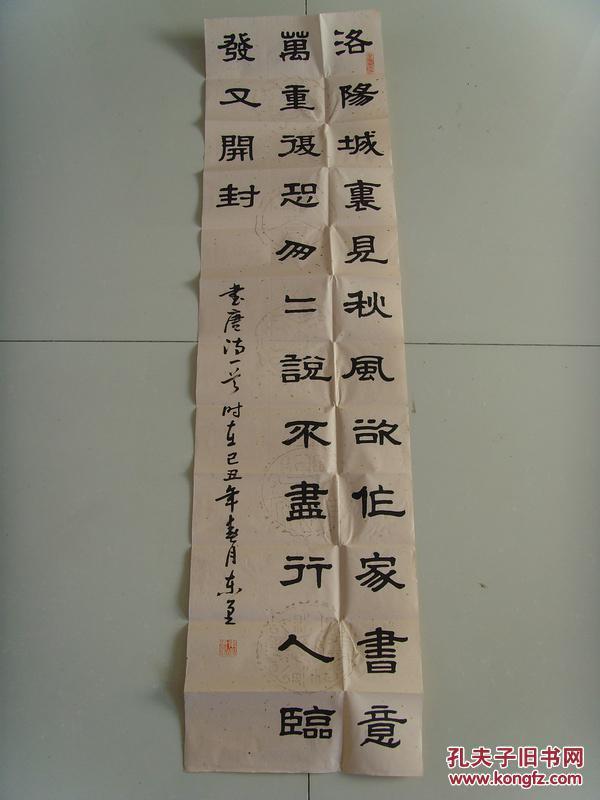 洛陽城裏見秋風欲作家書意
萬重復恐匆々說不盡行人臨
發又開封
书唐诗一首 时在己丑年春月东
孔夫子旧书网
www.kongfz.com